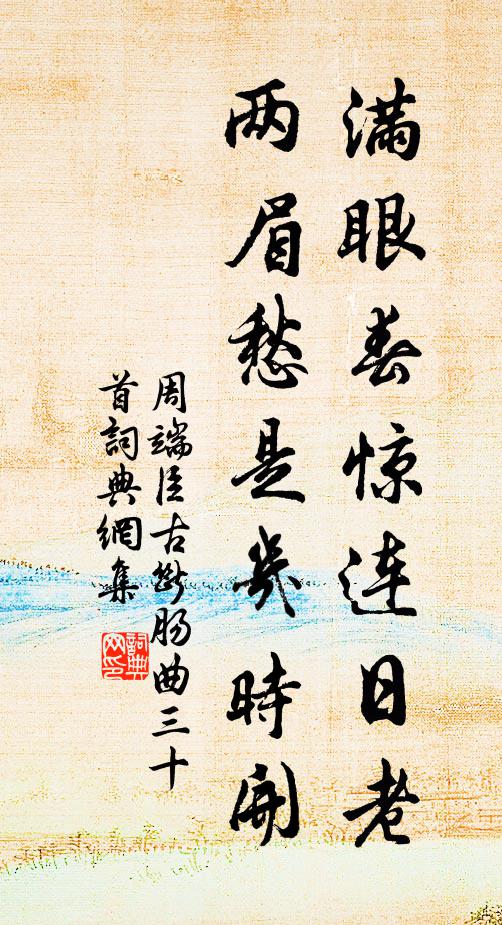 满眼春惊连日老
两眉愁是几时開
周端臣古断肠曲三十
首詞典網集
詞典
网印